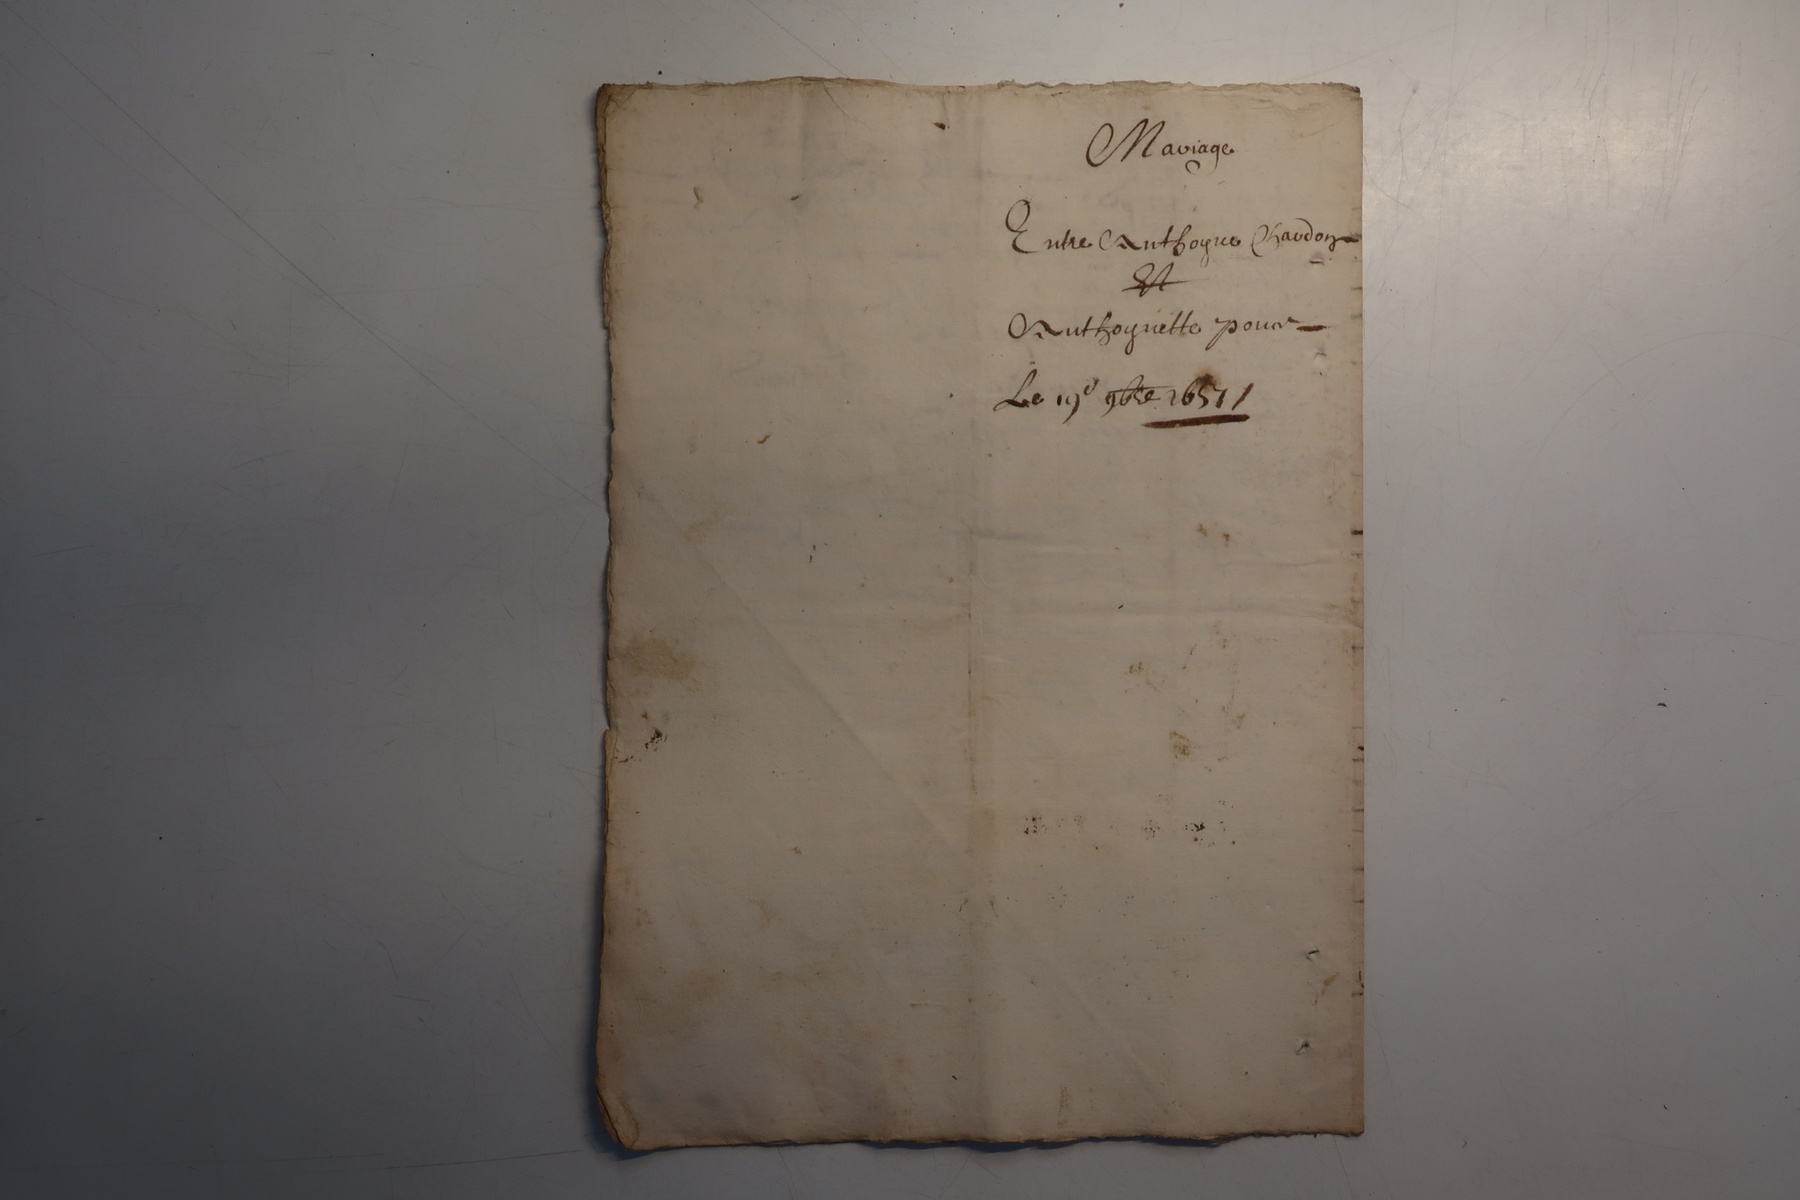 Mariage
Entre Anthoyne Chardon
Et
Anthoynette pour
Le 19e 9bre 1657